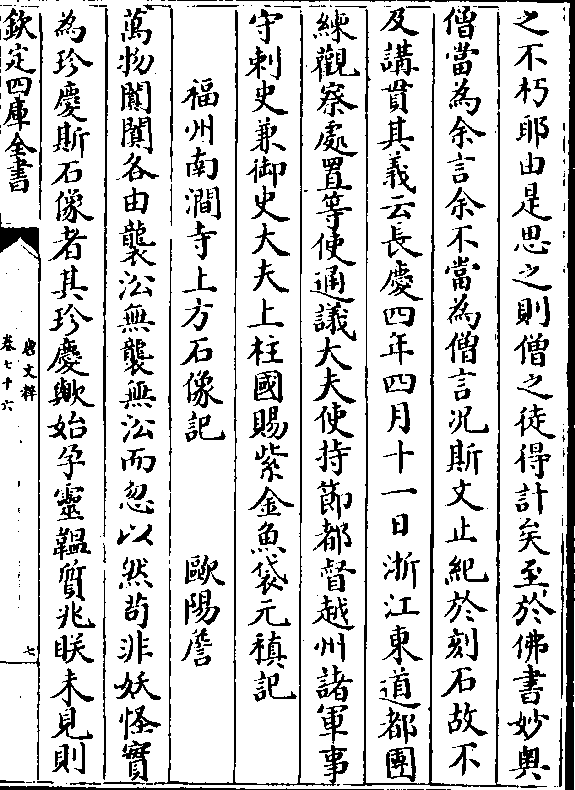 之不朽耶由是思之則僧之徒得計矣至於佛書妙奥
僧當為余言余不當為僧言况斯文止紀於刻石故不
及講貫其義云長慶四年四月十一日浙江東道都團
練觀察處置等使通議大夫使持節都督越州諸軍事
守刺史兼御史大夫上柱國賜紫金魚袋元稹記
福州南澗寺上方石像記 歐陽詹
萬物闔闢各由襲沿無襲無沿而忽以然苟非妖怪實
為珍慶斯石像者其珍慶歟始孕靈韞質兆眹未見則
欽定四庫全書
唐文粹
卷七十六
七